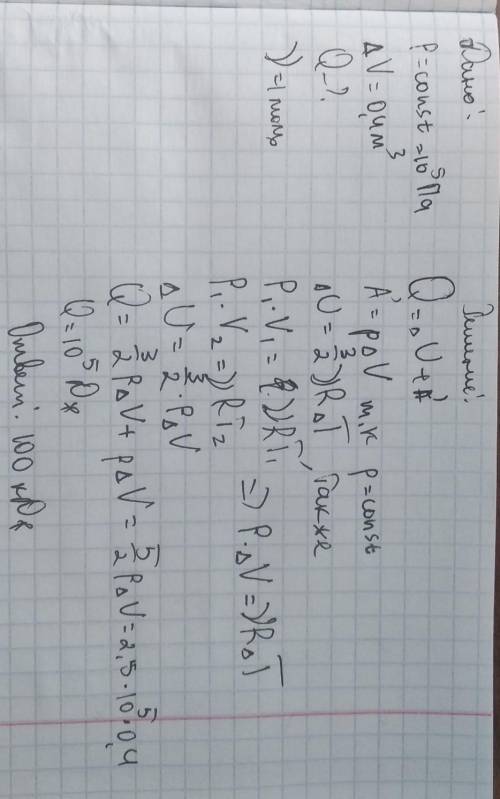 Дано:
P=const=10⁵Па
ΔV=0,4м³
Q-?
ν=1моль
Решение:
Q=ΔU+A'
A'=pΔV т.к p=const
ΔU=3/2 νRΔT, также
P₁·V₁=νRT₁
P₁·V₂=νRT₂ => P·ΔV=νRΔT
ΔU=3/2·PΔV
Q=3/2 PΔV+pΔV=5/2 PΔV=2,5·10⁵·0,4
Q=10⁵Дж
Ответ: 100 кДж